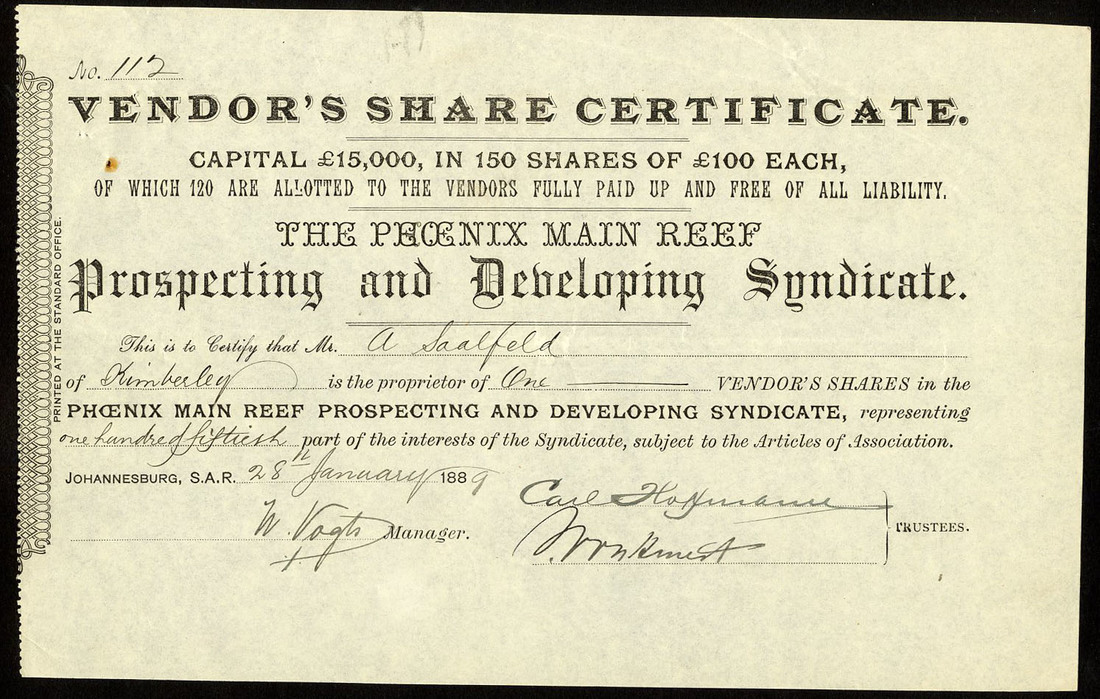 No. 112
VENDOR'S SHARE CERTIFICATE.
CAPITAL £15,000, IN 150 SHARES OF £100 EACH,
OF WHICH 120 ARE ALLOTTED TO THE VENDORS FULLY PAID UP AND FREE OF ALL LIABILITY.
THE PHŒNIX MAIN REEF
Prospecting and Developing Syndicate.
This is to Certify that Mr. A Saalfeld
of Kimberley is the proprietor of One VENDOR'S SHARES in the
PHŒNIX MAIN REEF PROSPECTING AND DEVELOPING SYNDICATE, representing
one hundred fiftieth part of the interests of the Syndicate, subject to the Articles of Association.
JOHANNESBURG, S.A.R. 28th January 1889
Carl Hoffmann
W. Vogts Manager.
TRUSTEES.
PRINTED AT THE STANDARD OFFICE.